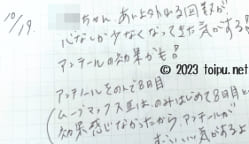 10/19. ちゃん、あし上がる回数が
心なしか少なくなってきた気がする?
アンテールの効果かも?
© 2023 toipu.net
アンテールそのんで8日目
(ムーブマックス は のみはじめて8日目
効果感じなかったから、アンテールが
いい気がするよ